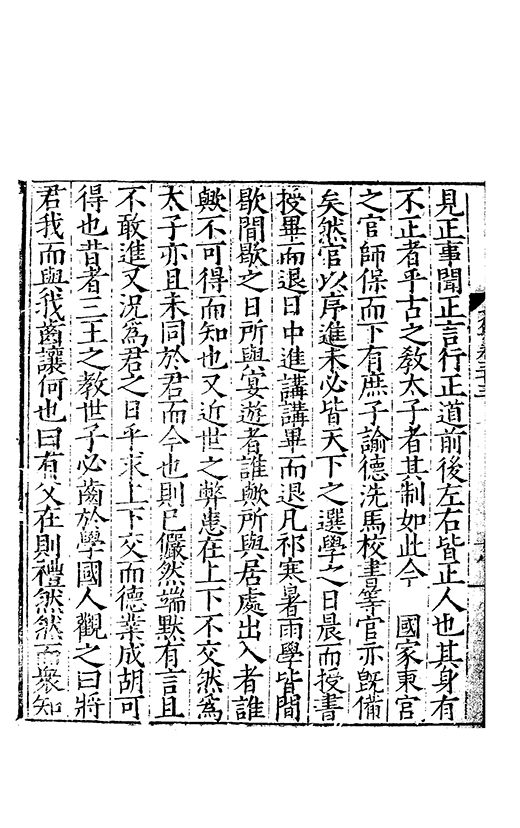 見正事聞正言行正道前後左右皆正人也其身有
不正者乎古之敎太子者其制如此今　國家東官
之官師保而下有庶子諭德洗馬校書等官亦旣備
矣然官以序進未必皆天下之選學之日晨而授書
授畢而退日中進講講畢而退凡祁寒暑雨學皆間
歇間歇之日所與宴遊者誰歟所與居處出入者誰
歟不可得而知也又近世之弊患在上下不交然爲
太子亦且未同於君而今也則已儼然端默有言且
不敢進又況爲君之日乎求上下交而德業成胡可
得也昔者三王之教世子必齒於學國人觀之曰將
君我而與我齒讓何也曰有父在則禮然然而衆知